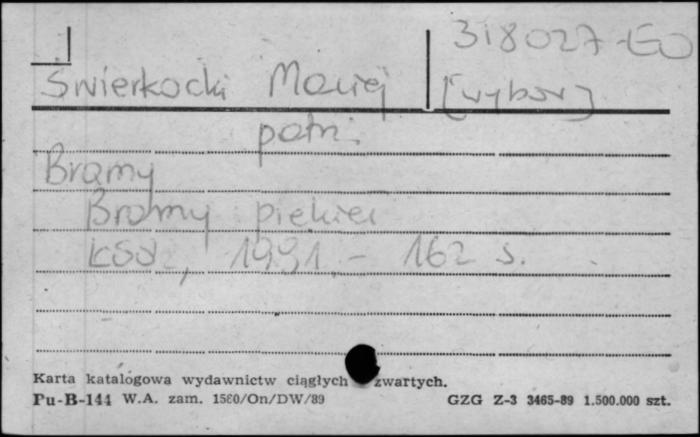 318027-EO
Świerkocki Maciej [wybór]
patrz:
Bramy
Bramy piekieł
Łódź, 1991. - 162 s.
Karta katalogowa wydawnictw ciągłych zwartych.
Pu-B-144 W.A. zam. 1560/On/DW/89 GZG Z-3 3465-89 1.500.000 szt.